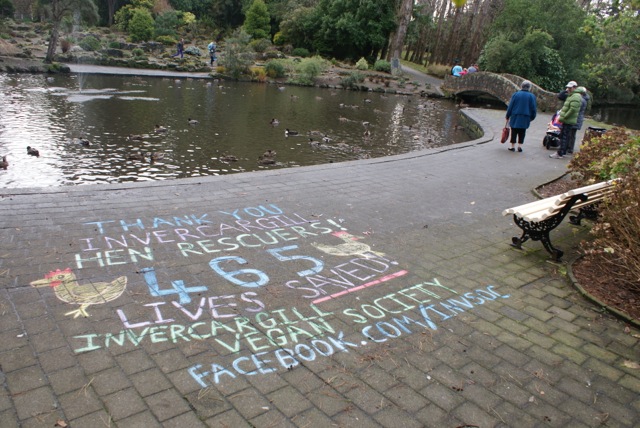 THANK YOU
INVERCARGILL
HEN RESCUERS!
465
LIVES SAVED!
INVERCARGILL
VEGAN SOCIETY
FACEBOOK.COM/INVSOC